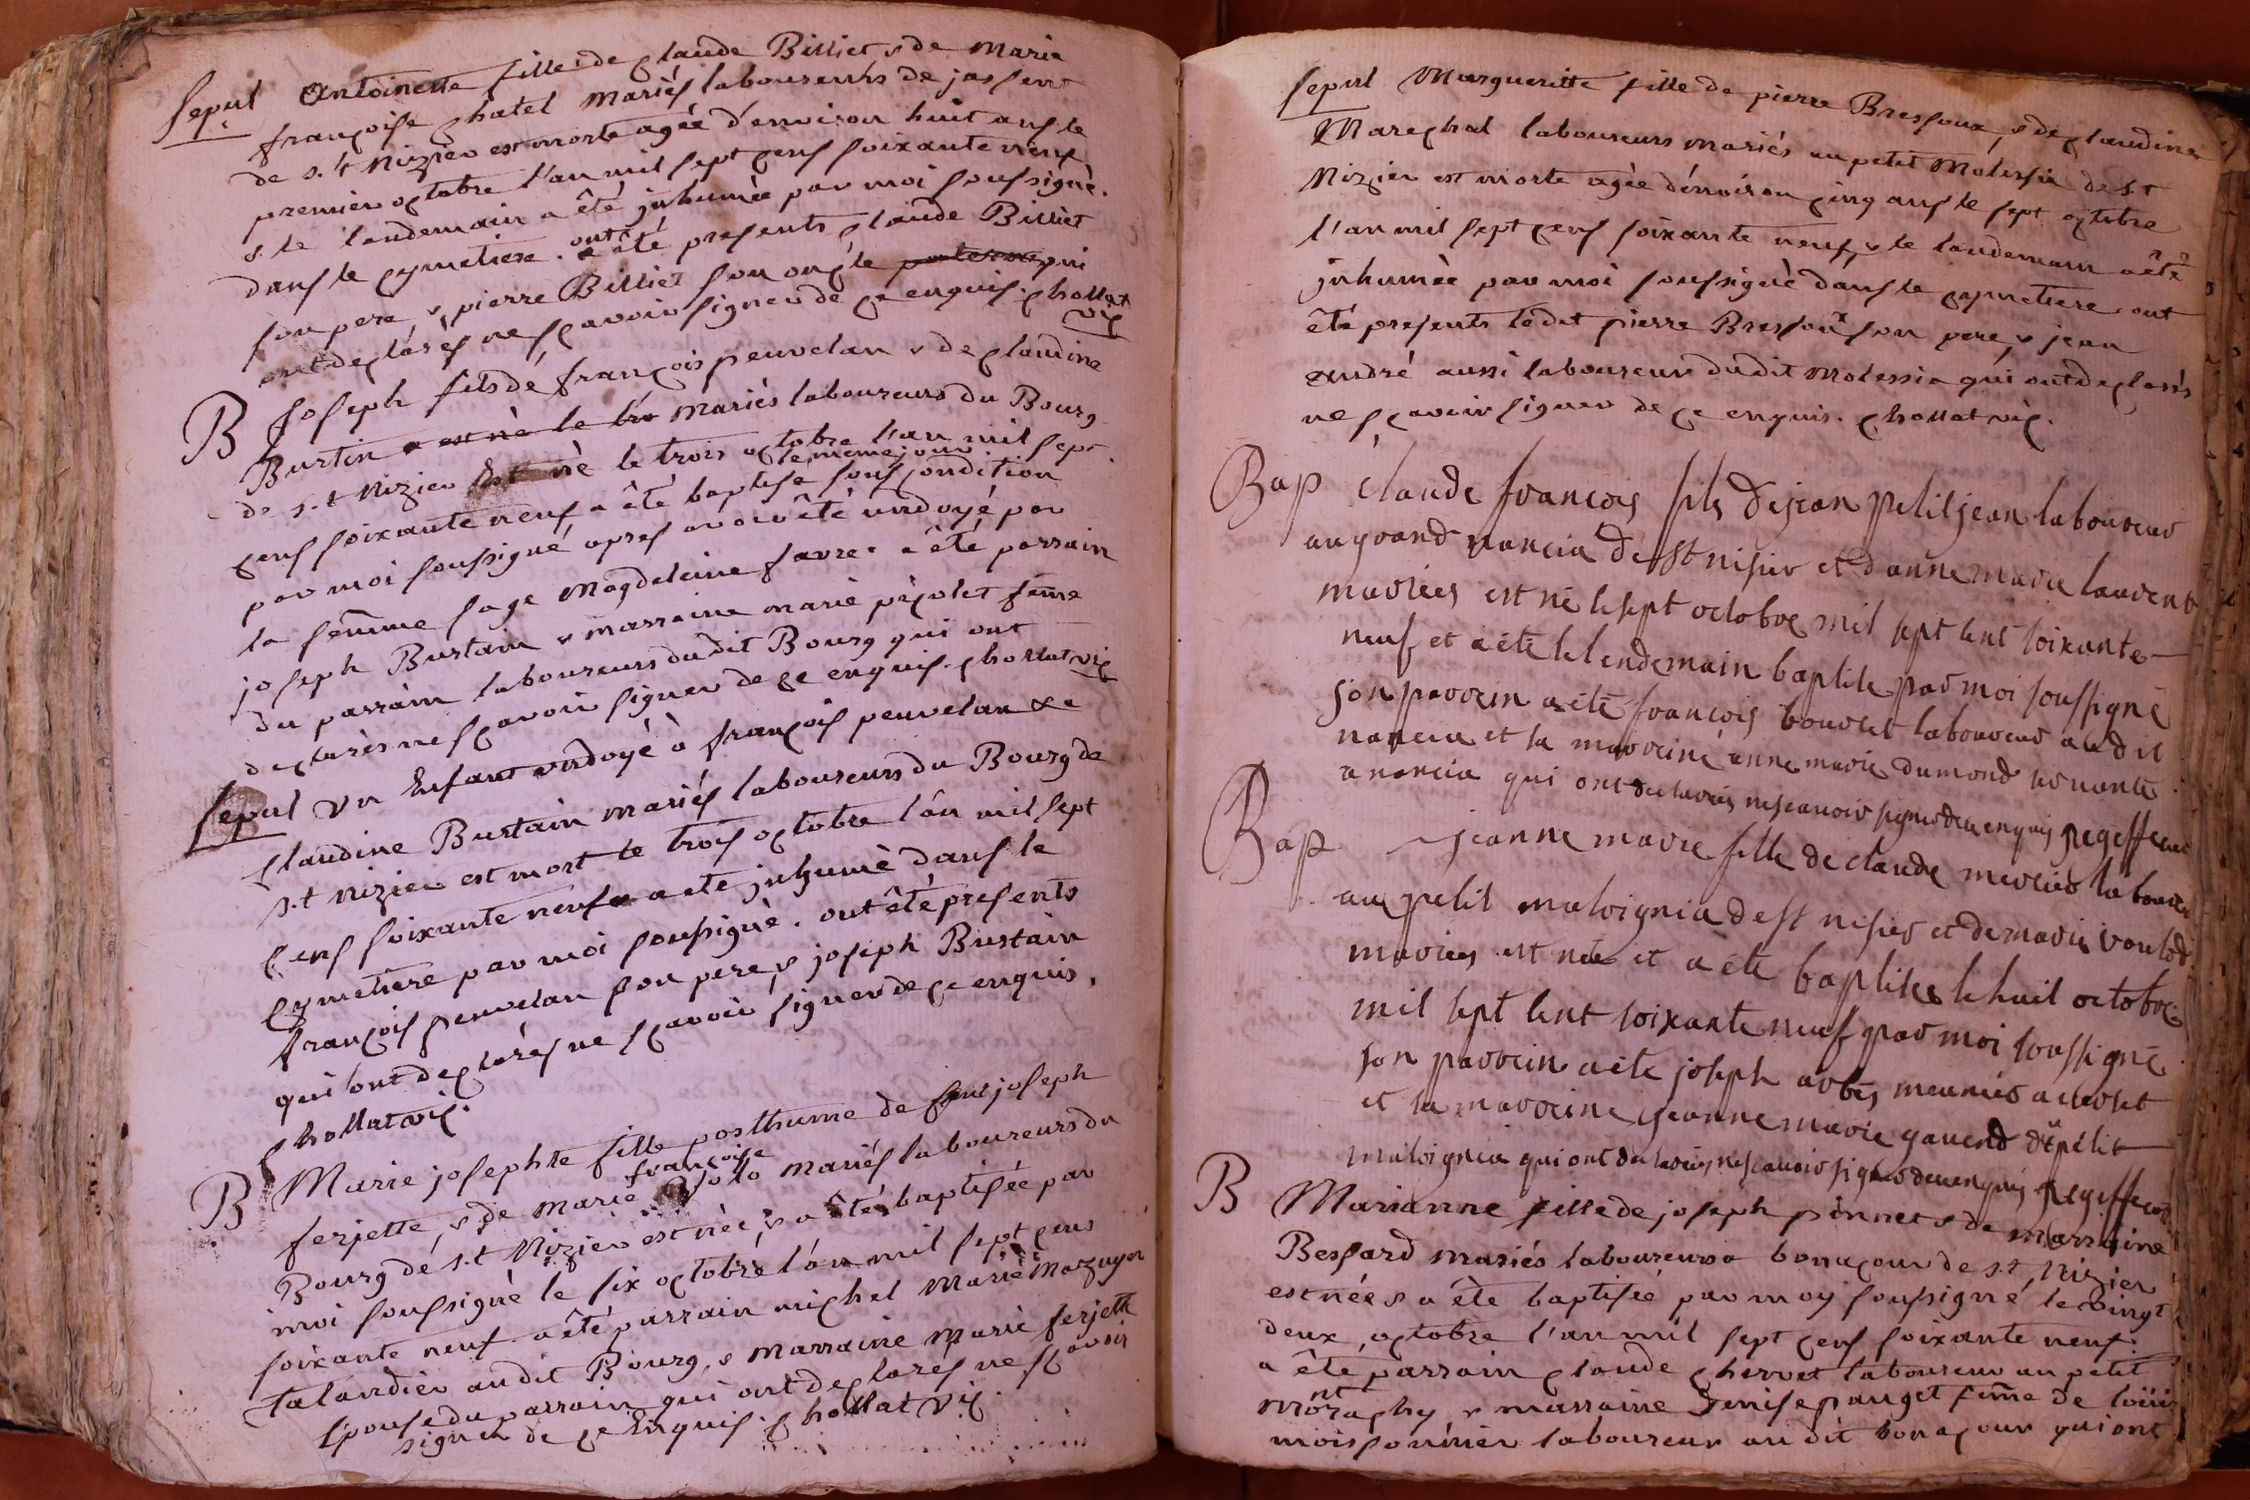 Sepul Antoinette fille de Claude Billiet & de Marie
françoise Chatel mariés laboureurs de jassero
de s.t Nizier est morte agée d'environ huit ans le
premier octobre l'an mil sept cens soixante neuf
& le landemain a été inhumée par moi soussigné
dans le cymetiere. ont été presents Claude Billiet
son pere & pierre Billiet son oncle qui
ont declarés ne sçavoir signer de ce enquis. Chollat
vic
B Joseph fils de françois peuvelan & de Claudine
Burtin est né le tro mariés laboureurs du Bourg
de s.t Nizier Est né le trois octobre l'an mil sept
le meme jour
cens soixante neuf a été baptisé sous condition
par moi soussigné apres avoir été ondoyé par
la femme sage Magdeleine favre. a été parrain
joseph Burtain & marraine marie picolet feme
du parrain laboureurs du dit Bourg qui ont
declarés ne sçavoir signer de ce enquis. Chollat vic
Sepul un Enfant ondoyé à françois peuvelan & a
Claudine Burtain mariés laboureurs du Bourg de
s.t Nizier est mort le trois octobre l'an mil sept
cens soixante neuf a eté inhumé dans le
Cymetiere par moi soussigné. ont été presents
françois peuvelan son pere & joseph Burtain
qui ont declarés ne sçavoir signer de ce enquis,
Chollat vic.
B Marie josephte fille posthume de feu joseph
françoise
ferjette, & de marie mariés laboureurs du
Bourg de s.t Nizier est née, & a été baptisée par
moi soussigné le six octobre l'an mil sept cens
soixante neuf a été parrain michel Marie
talandier au dit Bourg, & marraine Marie ferjette
Epouse du parrain qui ont declarés ne sçavoir
signer de ce Enquis. Chollat vic.
Sepul Margueritte fille de pierre Bressoux, & de Claudine
Marechal laboureurs mariés au petit Molessia de s.t
Nizier est morte agée d'environ cinq ans le sept octobre
l'an mil sept cens soixante neuf & le landemain a été
inhumée par moi soussigné dans le cymetiere. ont
été presents ledit pierre Bressoux son pere, & jean
andré aussi laboureur dudit molessia qui ont declarés
ne sçavoir signer de ce enquis. Chollat vic.
Bap Claude francois fils de jean petitjean laboureur
au grand nancia de st nisier et d anne marie laurent
mariées est né le sept octobre mil sept cent soixante
neuf et a été le lendemain baptisé par moi soussigné
son parrein a été francois bouvret laboureur au dit
nancia et sa marreine anne marie dumond servante
a nancia qui ont declarées ne scavoir signer de ce enquis
Bap jeanne marie fille de claude mercier laboureur
au petit maloignia de st nisier et de marie
mariées est née et a été baptisée le huit octobre
mil sept cent soixante neuf par moi soussigné
son parrein a été joseph meunier a
et sa marreine jeanne marie du petit
maloignia qui ont declarées ne scavoir signer de ce enquis
B Marianne fille de joseph pônnet & de marraine
Bessard mariés laboureurs a bonacour de s.t Nizier
est née & a été baptisée par moy soussigné, le vingt
deux octobre l'an mil sept cens soixante neuf:
a été parrain Claude Chervet laboureur au petit
montrachy & marraine Denise pauget feme de loüis
moissonnier laboureur au dit bonacour qui ont